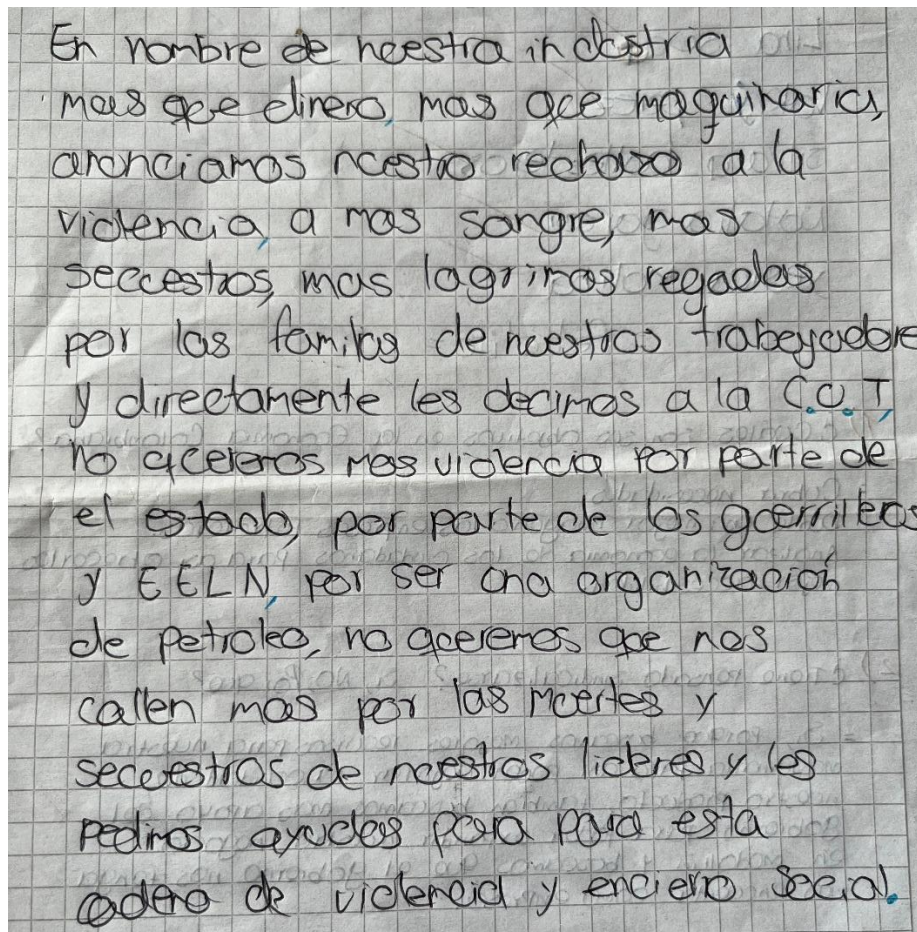 En nombre de nuestra industria
mas que dinero, mas que maquinaria,
anunciamos nuestro rechazo a la
violencia, a mas sangre, mas
secuestros, mas lagrimas regadas
por las familas de nuestros trabayadore
y directamente les decimos a la C.U.T,
no queremos mas violencia por parte de
el estado, por parte de los guerrilleros
y EELN, por ser una organizacion
de petroleo, no queremos que nos
callen mas por las muertes y
secuestros de nuestros lideres y les
pedimos ayudas para para esta
de violencia y encierro social.